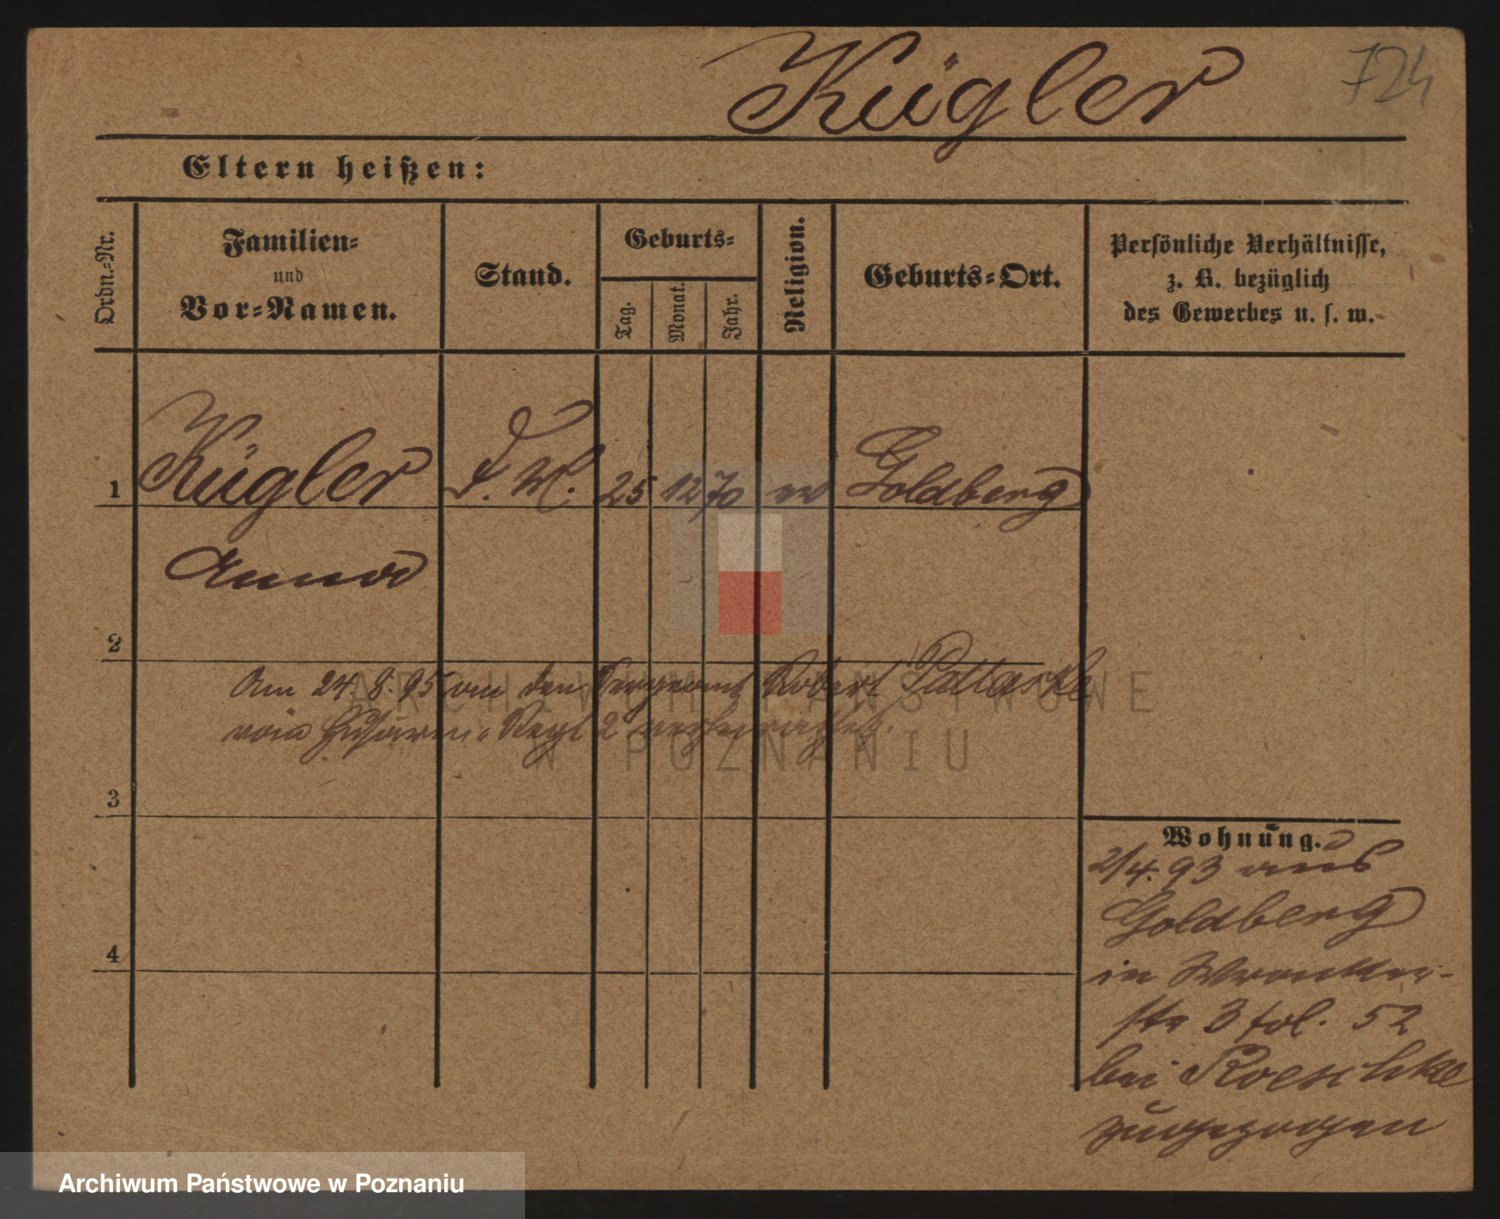 Kügler
724
Eltern heißen:
Ordn.-Nr.
Familien-
und
Vor-Namen.
Stand.
Geburts-
Tag.
Monat.
Jahr.
Religion.
Geburts-Ort.
Persönliche Verhältnisse,
z. B. bezüglich
des Gewerbes u. s. w.
1 Kügler D. M. 25 12 70 ev Goldberg
Anna
2
Am 24.8.95 an den Sergeant Robert
vom Husaren Regt 2 verheirathet.
ARCHIWUM PAŃSTWOWE
W POZNANIU
3
Wohnung.
2/4.93 aus
Goldberg
in Wronker-
str 3 fol. 52
bei Roeschke
zugezogen
4
Archiwum Państwowe w Poznaniu